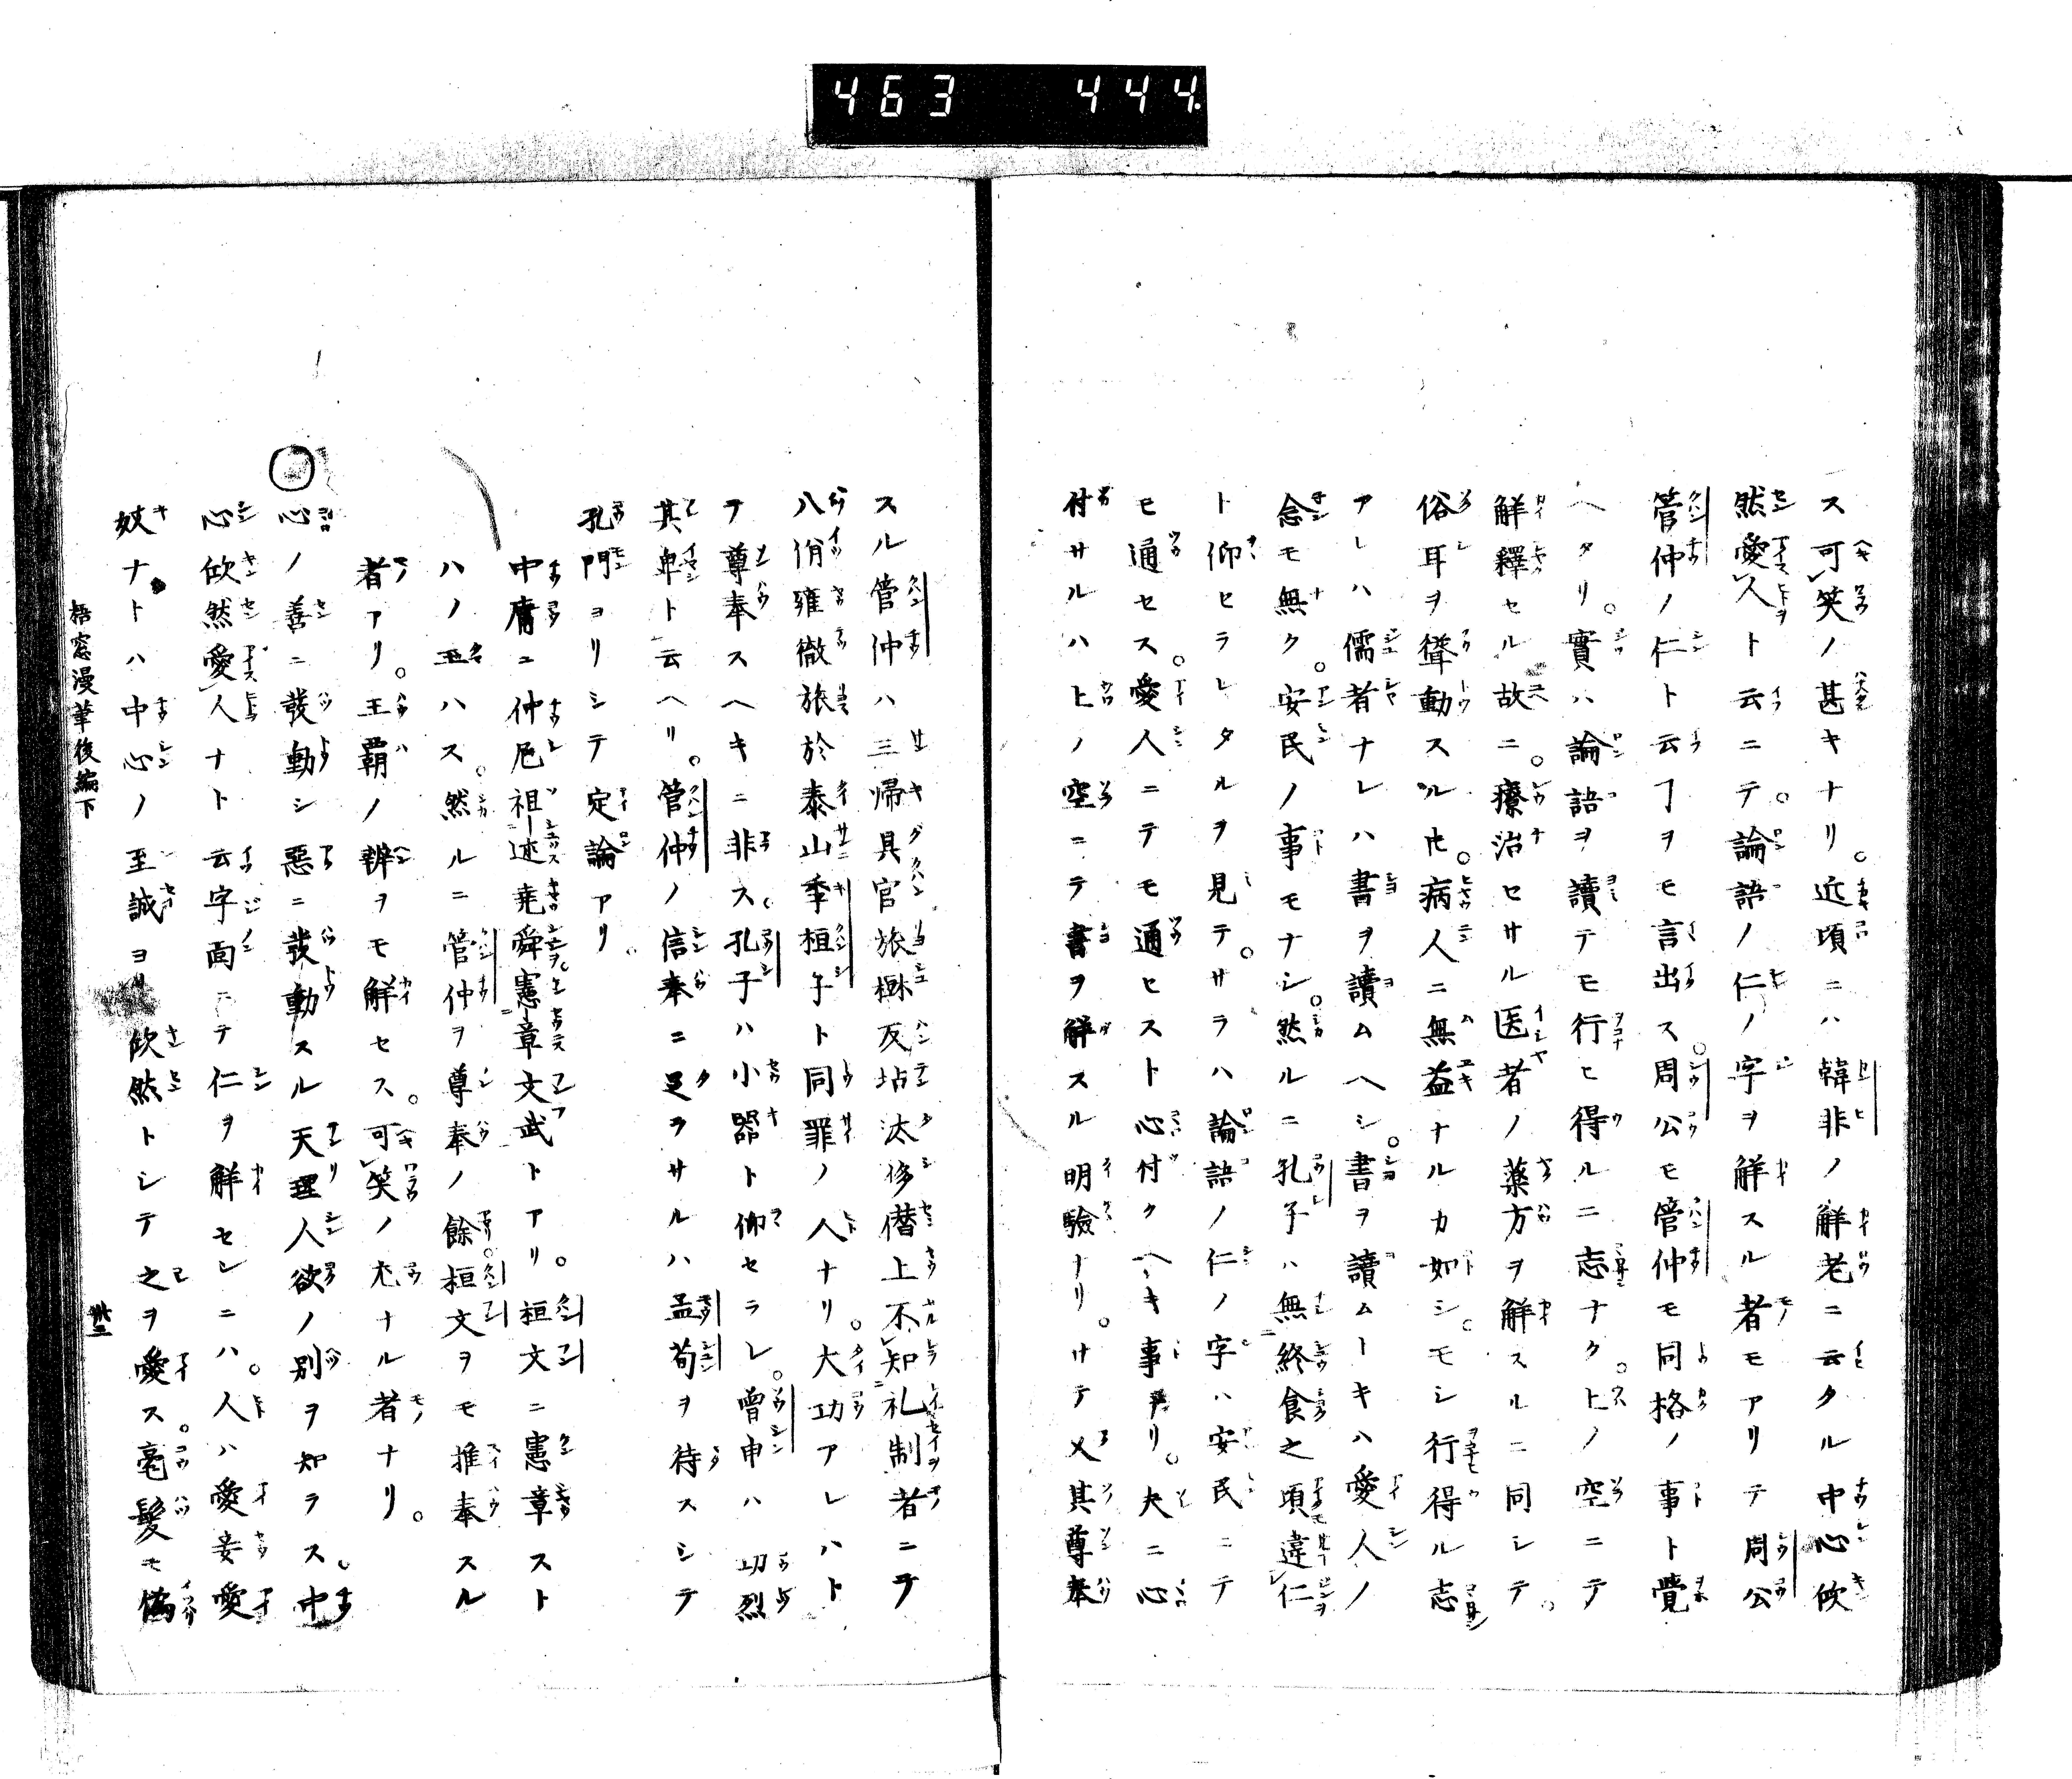 463 444.
ス可笑ノ甚キナリ。近頃ニハ韓非ノ解老ニ云タル中心欣
然愛人ト云ニテ。論語ノ仁ノ字ヲ解スル者モアリテ周公
管仲ノ仁ト云ヿヲモ言出ス。周公モ管仲モ同格ノ事ト覺
ヘタリ。實ハ論語ヲ讀テモ行ヒ得ルニ志ナク。上ノ空ニテ
解釋セル故ニ。療治セサル医者ノ薬方ヲ解スルニ同シテ。
俗耳ヲ聳動スル𪜈。病人ニ無益ナルカ如シ。モシ行得ル志
アレハ儒者ナレハ書ヲ讀ムヘシ。書ヲ讀ムトキハ愛人ノ
念モ無ク。安民ノ事モナシ。然ルニ孔子ハ無終食之頃違仁
ト仰セラレタルヲ見テ。サラハ論語ノ仁ノ字ハ安民ニテ
モ通セス。愛人ニテモ通セスト心付クヘキ事ナリ。夫ニ心
付サルハ上ノ空ニテ書ヲ解スル明驗ナリ。サテ又其尊奉
スル管仲ハ三帰具官旅樹反坫汰侈僭上不知礼制者ニテ
八佾雍徹旅於泰山季桓子ト同罪ノ人ナリ。大功アレハト
テ尊奉スヘキニ非ス。孔子ハ小器ト仰セラレ。曾申ハ功烈
其卑ト云ヘリ。管仲ノ信奉ニ足ラサルハ孟荀ヲ待スシテ
孔門ヨリシテ定論アリ。
中庸ニ仲尼祖述堯舜憲章文武トアリ。桓文ニ憲章スト
ハノ玉ハス。然ルニ管仲ヲ尊奉ノ餘。桓文ヲモ推奉スル
者アリ。王覇ノ辨ヲモ解セス。可笑ノ尤ナル者ナリ。
○心ノ善ニ發動シ惡ニ發動スル天理人欲ノ別ヲ知ラス。中
心欣然愛人ナト云字面ニテ仁ヲ解セシニハ。人ハ愛妾愛
妓ナトハ中心ノ至誠ヨリ欣然トシテ之ヲ愛ス。毫髪モ偽
梧窓漫筆後編下
卅二